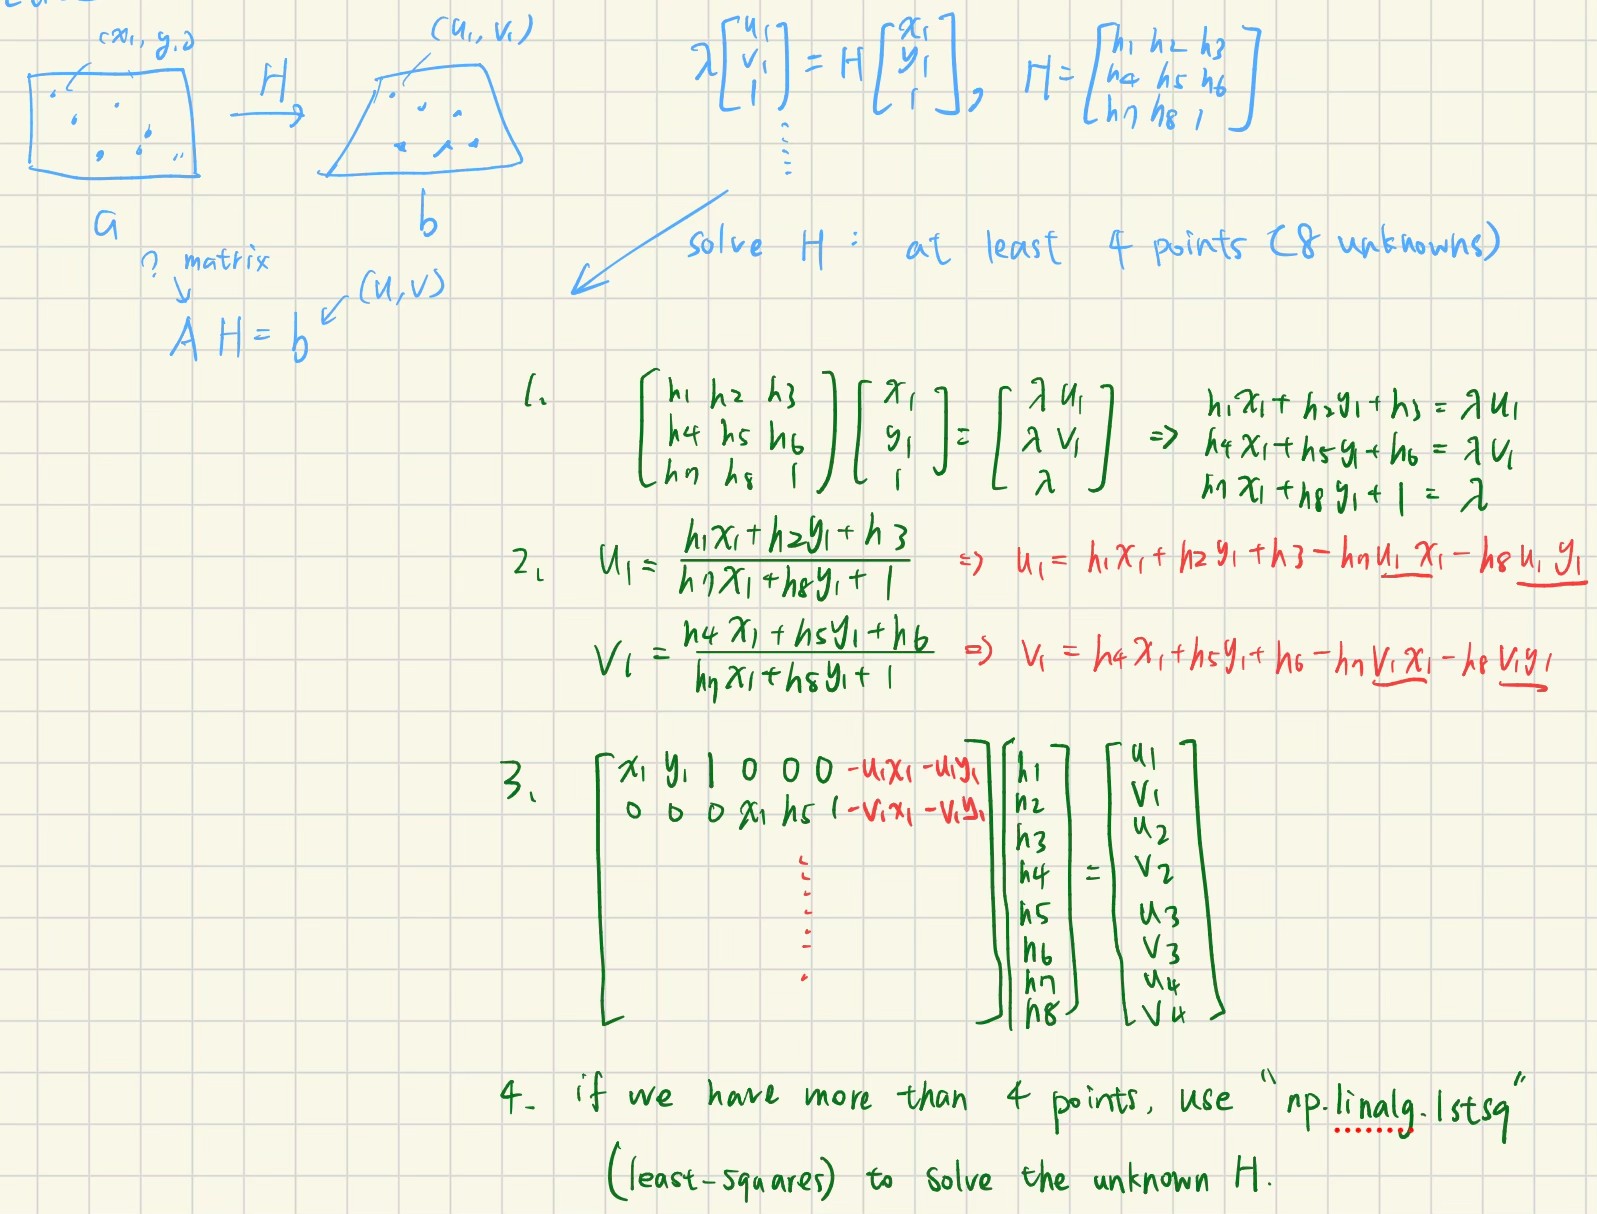 (x1, y1)
(u1, v1)
H
a
b
λ[u1 v1 1] = H[x1 y1 1], H = [h1 h2 h3
h4 h5 h6
h7 h8 1]
solve H : at least 4 points (8 unknowns)
? matrix
(u,v)
A H = b
1. [h1 h2 h3
h4 h5 h6
h7 h8 1] [x1 y1 1] = [λu1 λv1 λ] => h1x1 + h2y1 + h3 = λu1
h4x1 + h5y1 + h6 = λv1
h7x1 + h8y1 + 1 = λ
2. u1 = (h1x1 + h2y1 + h3) / (h7x1 + h8y1 + 1) => u1 = h1x1 + h2y1 + h3 - h7u1x1 - h8u1y1
v1 = (h4x1 + h5y1 + h6) / (h7x1 + h8y1 + 1) => v1 = h4x1 + h5y1 + h6 - h7v1x1 - h8v1y1
3. [x1 y1 1 0 0 0 -u1x1 -u1y1
0 0 0 x1 h5 1 -v1x1 -v1y1]
[h1 h2 h3 h4 h5 h6 h7 h8] = [u1 v1 u2 v2 u3 v3 u4 v4]
4. if we have more than 4 points, use "np.linalg.lstsq"
(least-squares) to solve the unknown H.